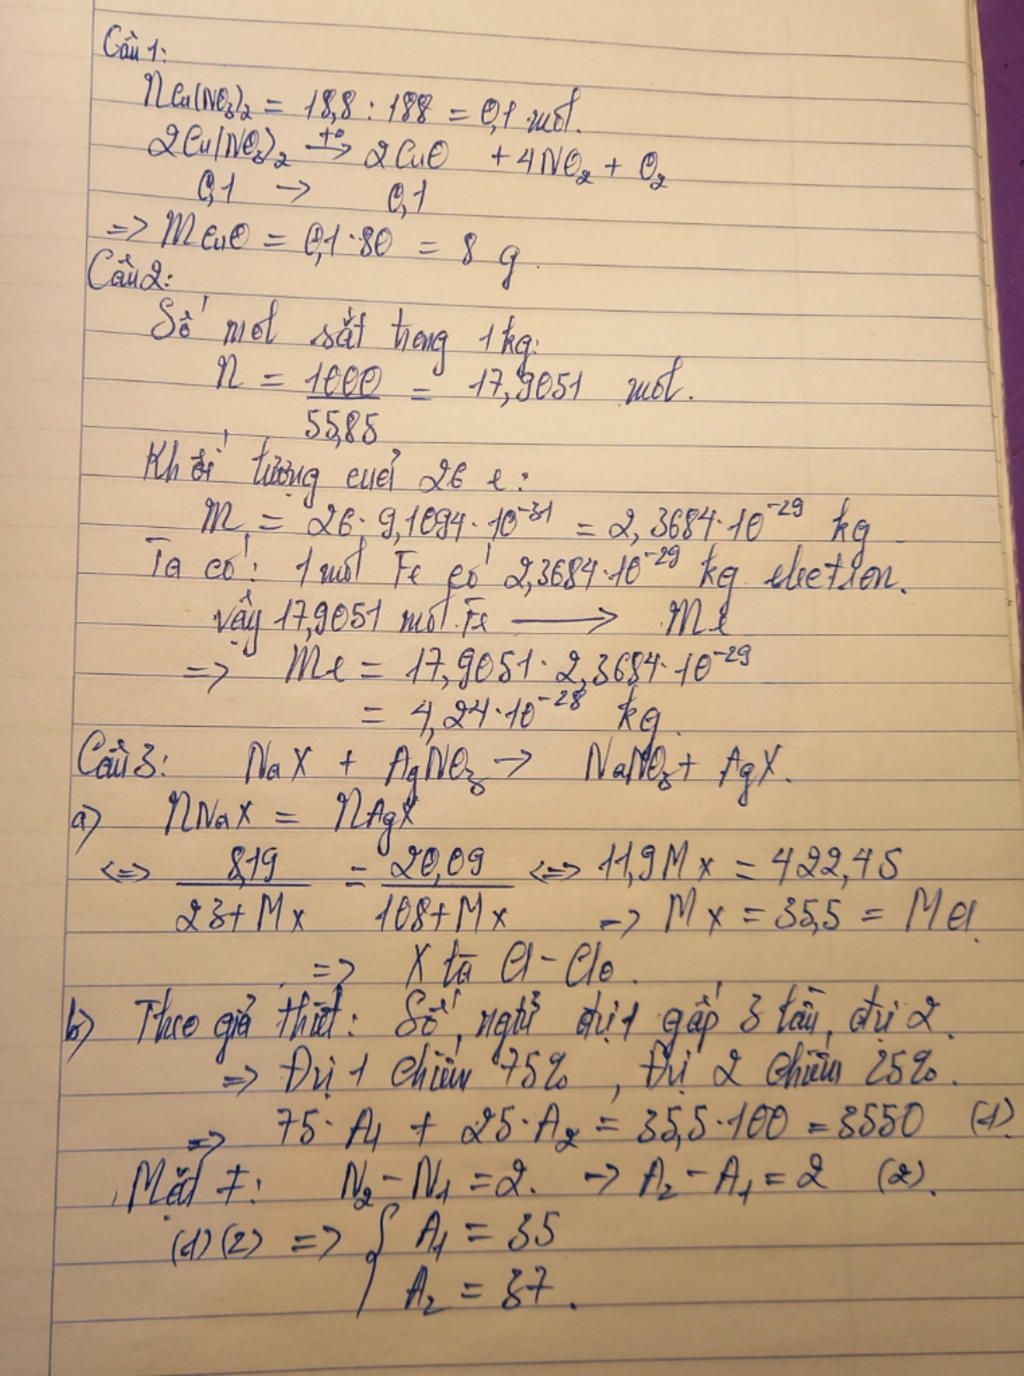 Câu 1:
nCu(NO₃)₂ = 18,8 : 188 = 0,1 mol.
2Cu(NO₃)₂ →(t°) 2CuO + 4NO₂ + O₂
0,1 → 0,1
=> mCuO = 0,1 · 80 = 8 g.
Câu 2:
Số mol sắt trong 1 kg:
n = 1000/55,85 = 17,9051 mol.
Khối lượng của 26 e:
m = 26 · 9,1094 · 10⁻³¹ = 2,3684 · 10⁻²⁹ kg
Ta có: 1 mol Fe có 2,3684 · 10⁻²⁹ kg electron.
vậy 17,9051 mol Fe ⟶ me
=> me = 17,9051 · 2,3684 · 10⁻²⁹
= 4,24 · 10⁻²⁸ kg.
Câu 3: NaX + AgNO₃ → NaNO₃ + AgX.
a) nNaX = nAgX
<=> 8,19/(23+Mx) = 20,09/(108+Mx) <=> 11,9Mx = 422,45
=> Mx = 35,5 = MCl
=> X là Cl - Clo.
b) Theo giả thiết: Số ngtử đvị 1 gấp 3 lần đvị 2.
=> Đvị 1 chiếm 75%, Đvị 2 chiếm 25%.
=> 75 · A₁ + 25 · A₂ = 35,5 · 100 = 3550 (1)
Mặt ≠: N₂ - N₁ = 2. → A₂ - A₁ = 2 (2).
(1)(2) => { A₁ = 35
A₂ = 37.